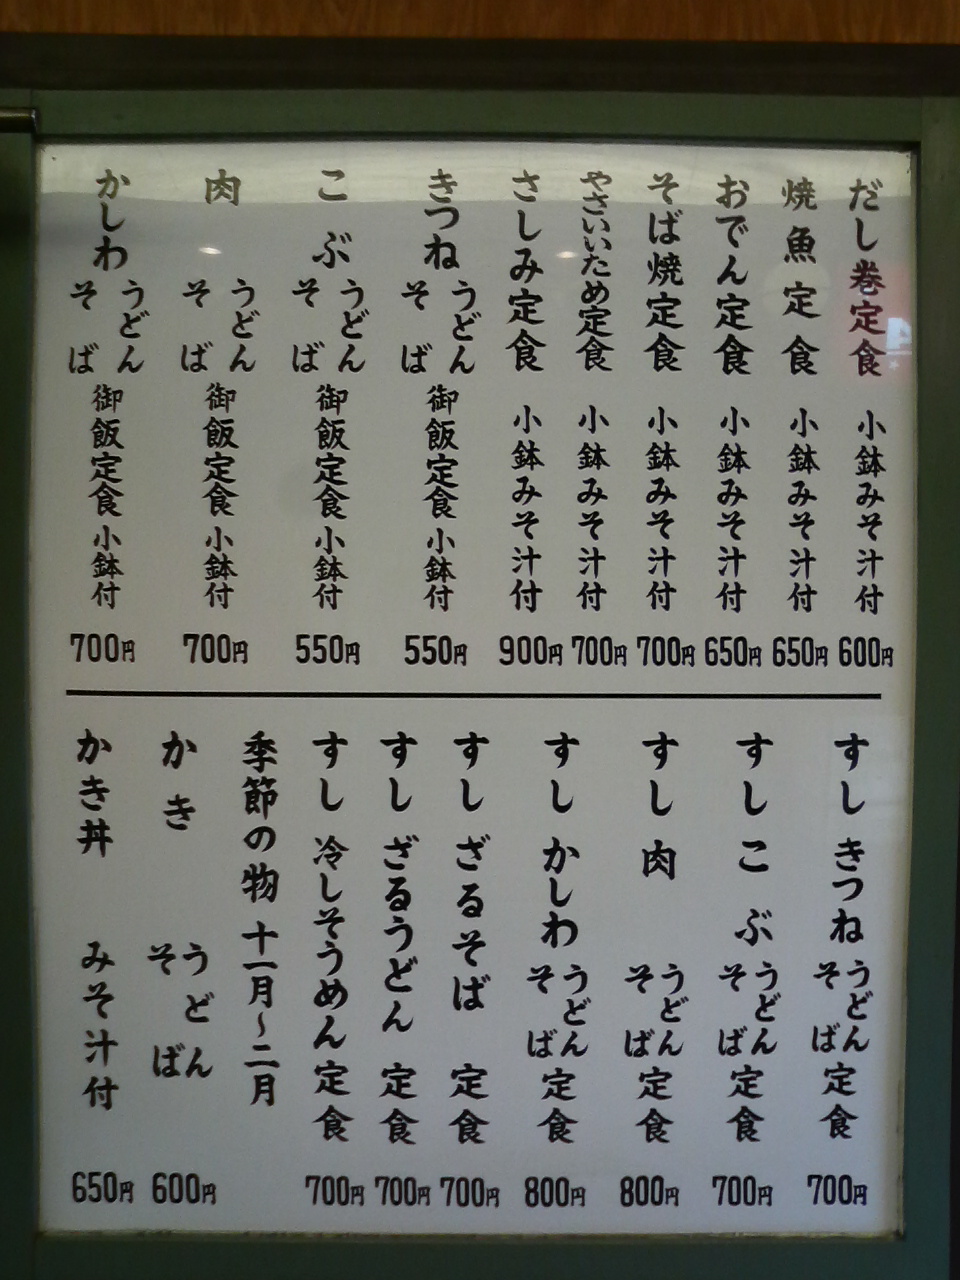 だし巻定食 小鉢みそ汁付 600円
焼魚定食 小鉢みそ汁付 650円
おでん定食 小鉢みそ汁付 650円
そば焼定食 小鉢みそ汁付 700円
やさいいため定食 小鉢みそ汁付 700円
さしみ定食 小鉢みそ汁付 900円
きつね うどん そば 御飯定食 小鉢付 550円
こぶ うどん そば 御飯定食 小鉢付 550円
肉 うどん そば 御飯定食 小鉢付 700円
かしわ うどん そば 御飯定食 小鉢付 700円
すし きつね うどん そば 定食 700円
すし こぶ うどん そば 定食 700円
すし 肉 うどん そば 定食 800円
すし かしわ うどん そば 定食 800円
すし ざるそば 定食 700円
すし ざるうどん 定食 700円
すし 冷しそうめん 定食 700円
季節の物 十一月～二月
かき うどん そば 600円
かき丼 みそ汁付 650円